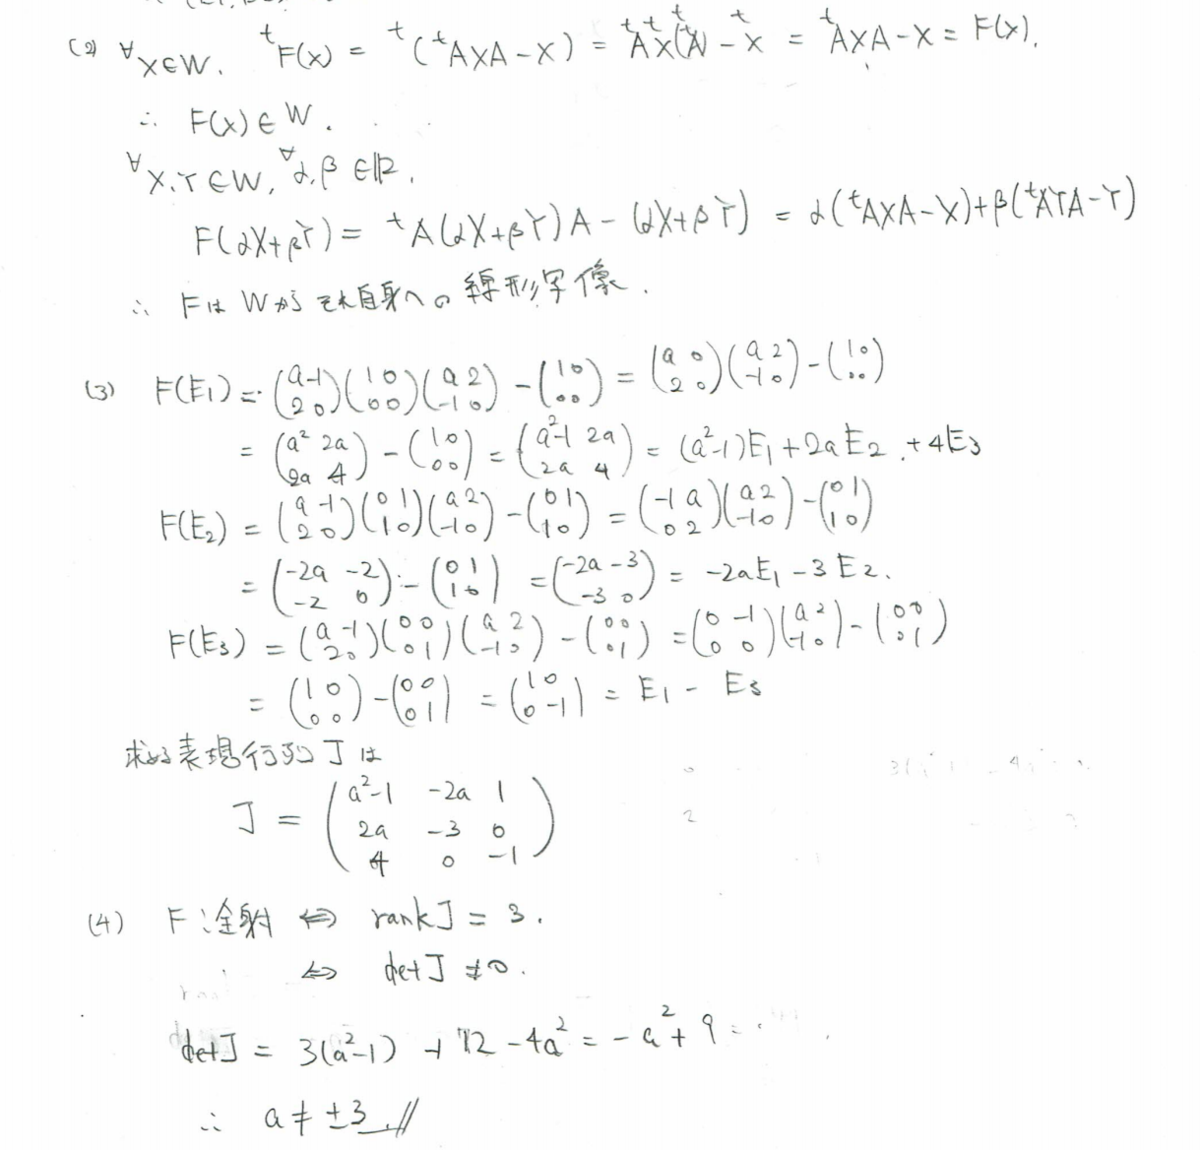 (2) ∀X∈W. ᵗF(X) = ᵗ(ᵗAXA-X) = ᵗAᵗXᵗ(ᵗA)-ᵗX = ᵗAXA-X = F(X).
∴ F(X)∈W.
∀X,Y∈W, ∀α,β∈ℝ,
F(αX+βY) = ᵗA(αX+βY)A-(αX+βY) = α(ᵗAXA-X)+β(ᵗAYA-Y)
∴ FはWからそれ自身への線形写像.
(3) F(E₁) = (a -1; 2 0)(1 0; 0 0)(a 2; -1 0)-(1 0; 0 0) = (a 0; 2 0)(a 2; -1 0)-(1 0; 0 0)
= (a² 2a; 2a 4)-(1 0; 0 0) = (a²-1 2a; 2a 4) = (a²-1)E₁+2aE₂+4E₃
F(E₂) = (a -1; 2 0)(0 1; 1 0)(a 2; -1 0)-(0 1; 1 0) = (-1 a; 0 2)(a 2; -1 0)-(0 1; 1 0)
= (-2a -2; -2 0)-(0 1; 1 0) = (-2a -3; -3 0) = -2aE₁-3E₂.
F(E₃) = (a -1; 2 0)(0 0; 0 1)(a 2; -1 0)-(0 0; 0 1) = (0 -1; 0 0)(a 2; -1 0)-(0 0; 0 1)
= (1 0; 0 0)-(0 0; 0 1) = (1 0; 0 -1) = E₁-E₃
求める表現行列Jは
J = (a²-1 -2a 1; 2a -3 0; 4 0 -1)
(4) F:全射 ⇔ rankJ = 3.
⇔ detJ ≠ 0.
detJ = 3(a²-1)+12-4a² = -a²+9
∴ a ≠ ±3.//